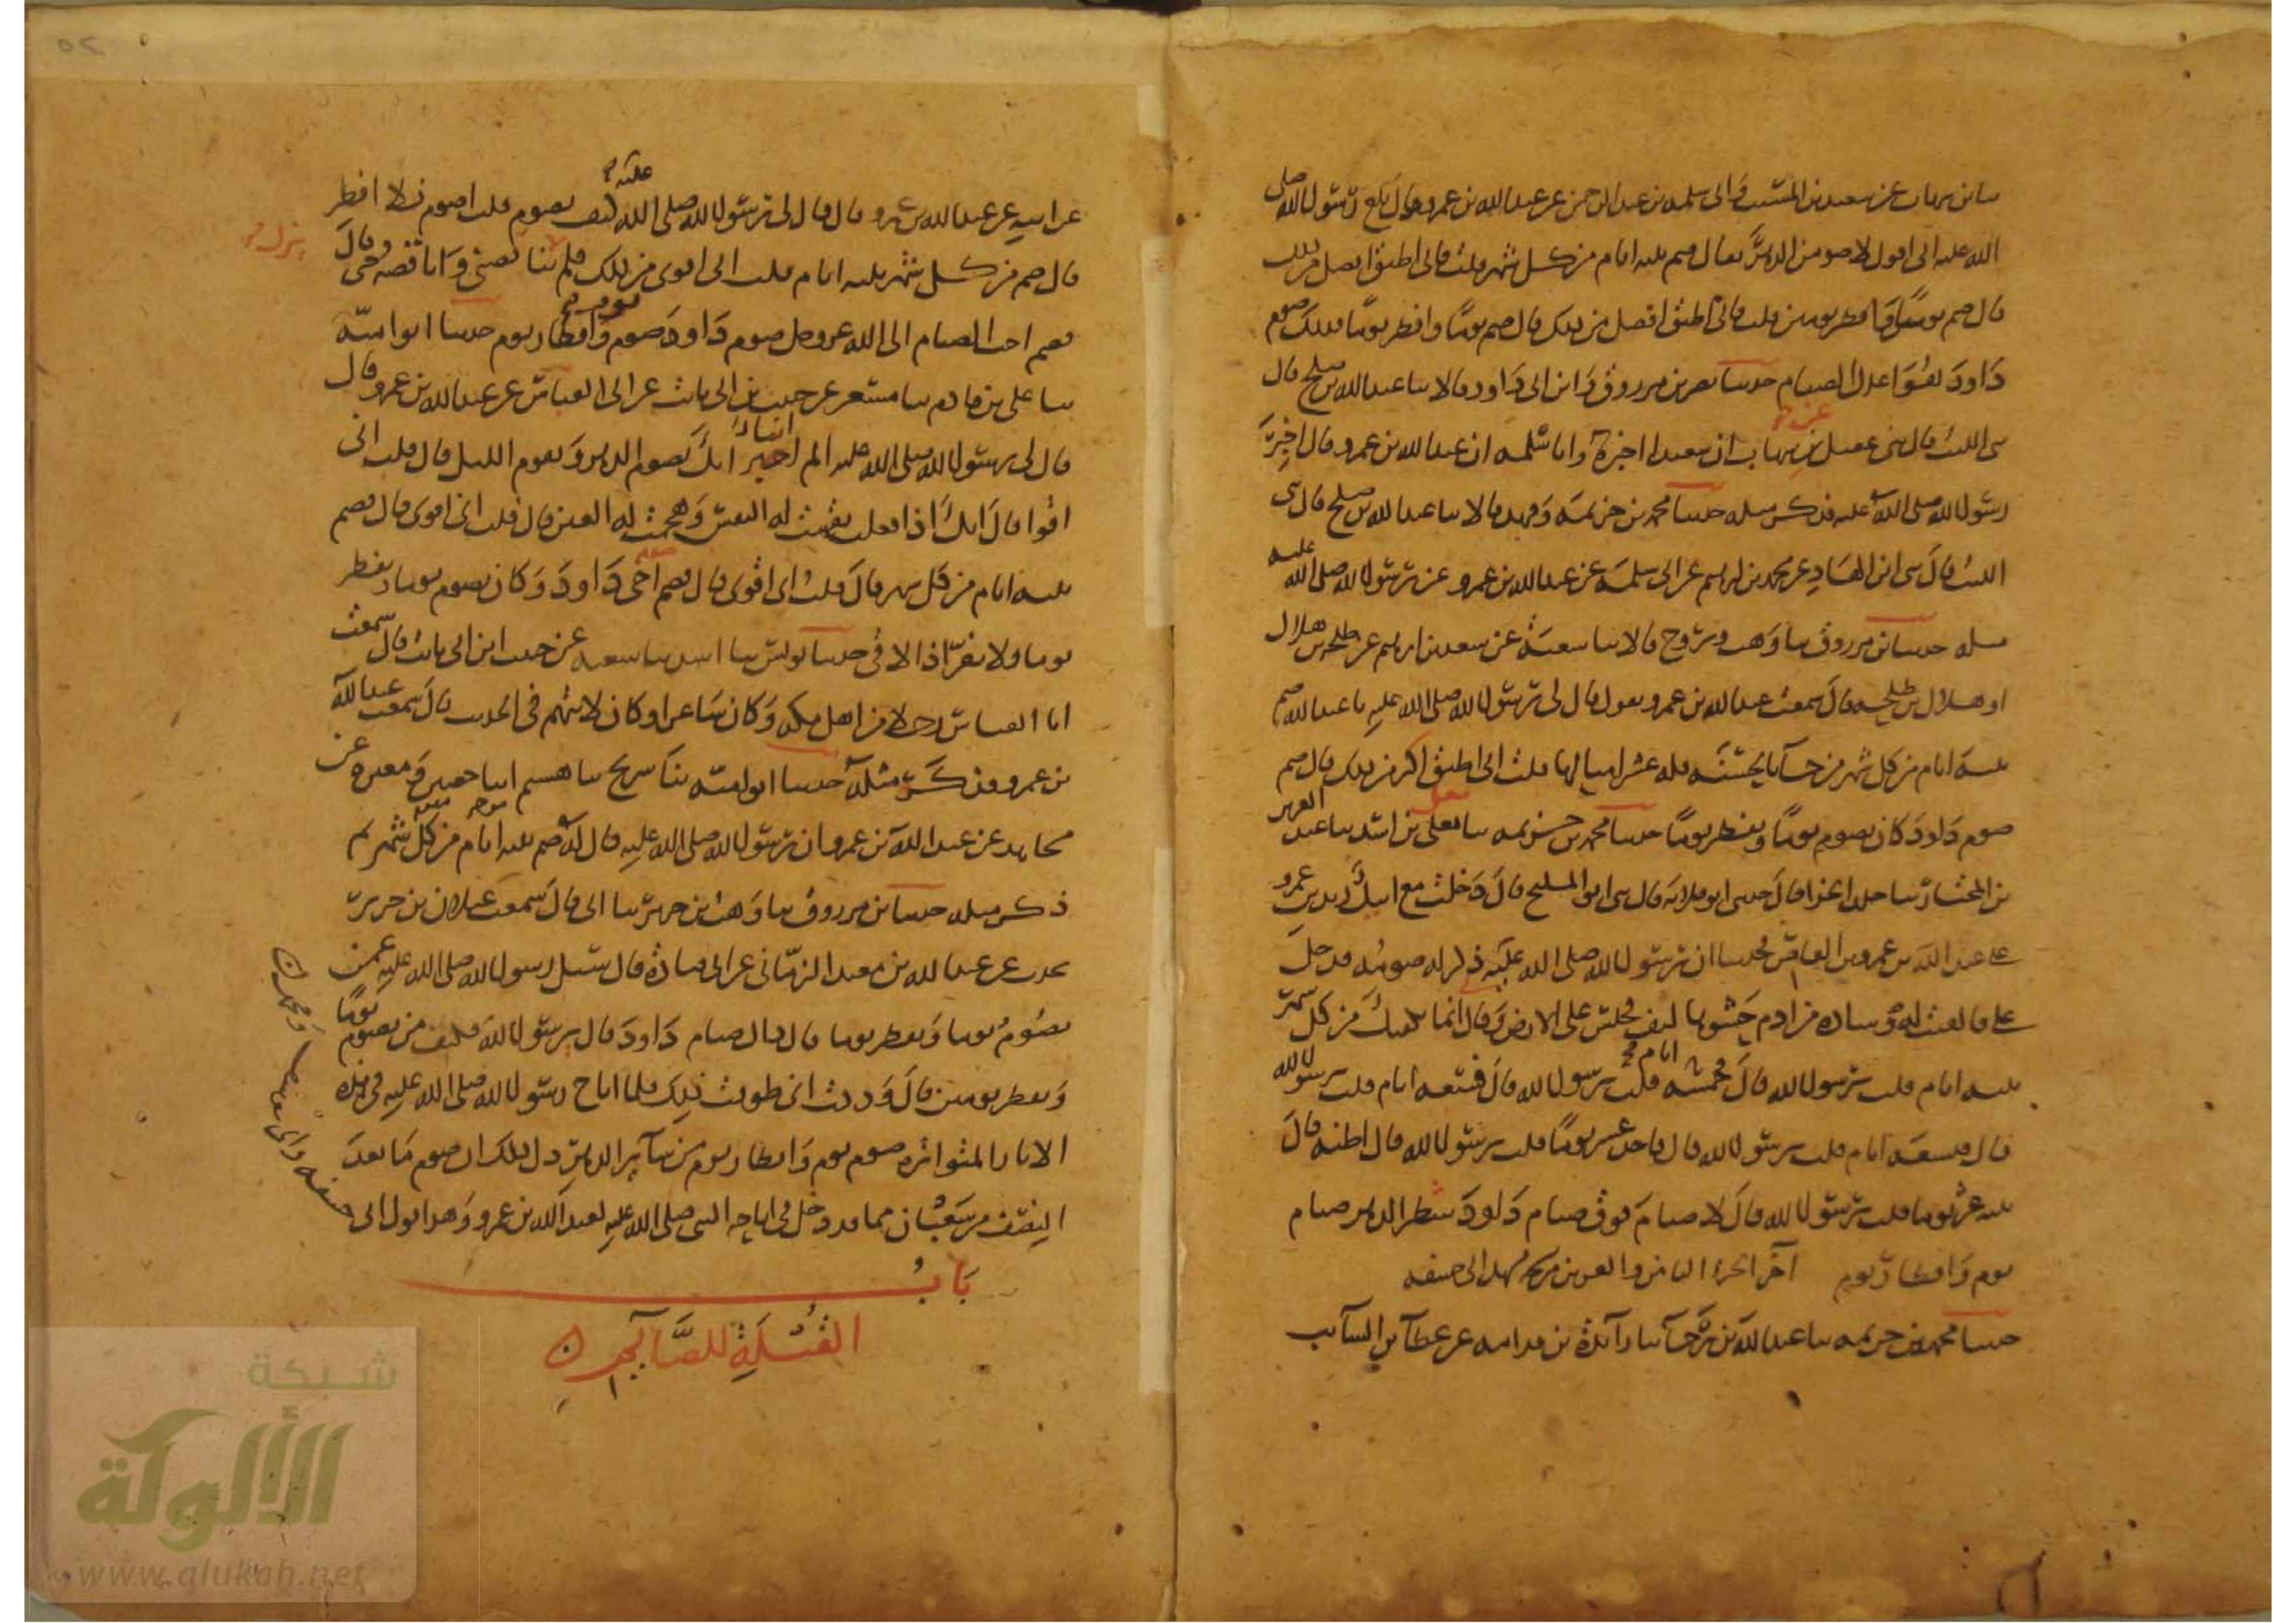 عن سعيد بن المسيب وابي سلمه بن عبد الرحمن عن عبد الله بن عمرو قال بلغ رسول الله صلى
الله عليه اني اقول لاصومن الدهر فقال صم ثلثه ايام من كل شهر قلت فاني اطيق افضل من ذلك
قال صم يوما وافطر يومين قلت فاني اطيق افضل من ذلك قال صم يوما وافطر يوما فذلك صوم
داود وهو اعدل الصيام حدثنا نصر بن مرزوق وابن ابي داود قالا ثنا عبد الله بن صلح قال
ثني الليث قال ثني عقيل عن ابن شهاب ان سعيدا اخبره وابا سلمه ان عبد الله بن عمرو قال اخبر
رسول الله صلى الله عليه فذكر مثله حدثنا محمد بن خزيمه وفهد قالا ثنا عبد الله بن صلح قال ثني
الليث قال ثني ابن الهاد عن محمد بن ابرهيم عن ابي سلمه عن عبد الله بن عمرو عن رسول الله صلى الله عليه
مثله حدثنا ابن مرزوق ثنا وهب وروح قالا ثنا شعبة عن سعد بن ابرهيم عن طلحه بن هلال
او هلال بن طلحه قال سمعت عبد الله بن عمرو يقول قال لي رسول الله صلى الله عليه يا عبد الله صم
ثلثه ايام من كل شهر من جا بالحسنه فله عشر امثالها قلت اني اطيق اكثر من ذلك قال صم
صوم داود كان يصوم يوما ويفطر يوما حدثنا محمد بن خزيمه ثنا معلى بن اسد ثنا عبد العزيز
بن المختار ثنا خلد الحذا قال حدثني ابو قلابه قال ثني ابو المليح قال دخلت مع ابيك زيد بن عمرو
على عبد الله بن عمرو بن العاص فحدثنا ان رسول الله صلى الله عليه ذكر له صومه فدخل
علي فالقيت له وساده من ادم حشوها ليف فجلس على الارض وقال انما يكفيك من كل شهر
ثلثه ايام قلت يرسول الله قال فخمسه ايام قلت يرسول الله قال فسبعه ايام قلت يرسول الله
قال فتسعه ايام قلت يرسول الله قال فاحد عشر يوما قلت يرسول الله قال اظنه قال
ثلثه عشر يوما قلت يرسول الله قال لا صيام فوق صيام داود شطر الدهر صيام
يوم وافطار يوم اخر الجزء الثامن والعشرين
حدثنا محمد بن خزيمه ثنا عبد الله بن رجا ثنا زائدة بن قدامه عن عطا بن السائب
عن ابيه عن عبد الله بن عمرو قال قال لي رسول الله صلى الله عليه كيف تصوم قلت اصوم فلا افطر
قال صم من كل شهر ثلثه ايام قلت اني اقوى من ذلك فلم يزل يناقصني واناقصه حتى قال
فصم احب الصيام الى الله عز وجل صوم داود صوم يوم وافطار يوم حدثنا ابو اميه
ثنا علي بن قادم ثنا مسعر عن حبيب بن ابي ثابت عن ابي العباس عن عبد الله بن عمرو قال
قال لي رسول الله صلى الله عليه الم اخبر انك تصوم الدهر وتقوم الليل قال قلت اني
اقوا قال انك اذا فعلت نفهت له النفس وهجمت له العين قال قلت اني اقوى قال فصم
ثلثه ايام من كل شهر قال قلت اني اقوى قال فصم صوم اخي داود وكان يصوم يوما ويفطر
يوما ولا يفر اذا لاقى حدثنا يونس ثنا اسد ثنا شعبه عن حبيب ابن ابي ثابت قال سمعت
ابا العباس رجلا من اهل مكه وكان شاعرا وكان لا يتهم في الحديث قال سمعت عبد الله
بن عمرو وذكر مثله حدثنا ابو اميه ثنا سريج ثنا هشيم انبا حصين ومغيره عن
مجاهد عن عبد الله بن عمرو ان رسول الله صلى الله عليه قال له صم ثلثه ايام من كل شهر ثم
ذكر مثله حدثنا ابن مرزوق ثنا وهب بن جرير ثنا ابي قال سمعت غيلان بن جرير
يحدث عن عبد الله بن معبد الزماني عن ابي قتادة قال سئل رسول الله صلى الله عليه عمن
يصوم يوما ويفطر يوما قال ذاك صيام داود قال يرسول الله فكيف من يصوم يوما
ويفطر يومين قال وددت اني طوقت ذلك فلما اباح رسول الله صلى الله عليه في هذه
الاثار المتواتره صوم يوم وافطار يوم من سائر الدهر دل ذلك ان صوم ما بعد
النصف من شعبان مما قد دخل في اباحه النبي صلى الله عليه لعبد الله بن عمرو وهذا قول ابي
حنيفه وابي يوسف ومحمد
باب
القبلة للصائم
شبكة
الألوكة
www.alukah.net